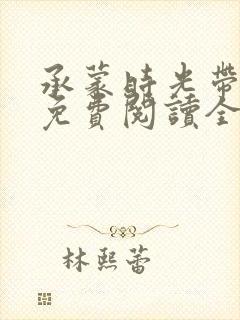 承蒙時光帶
免費閱讀全
林熙蕾